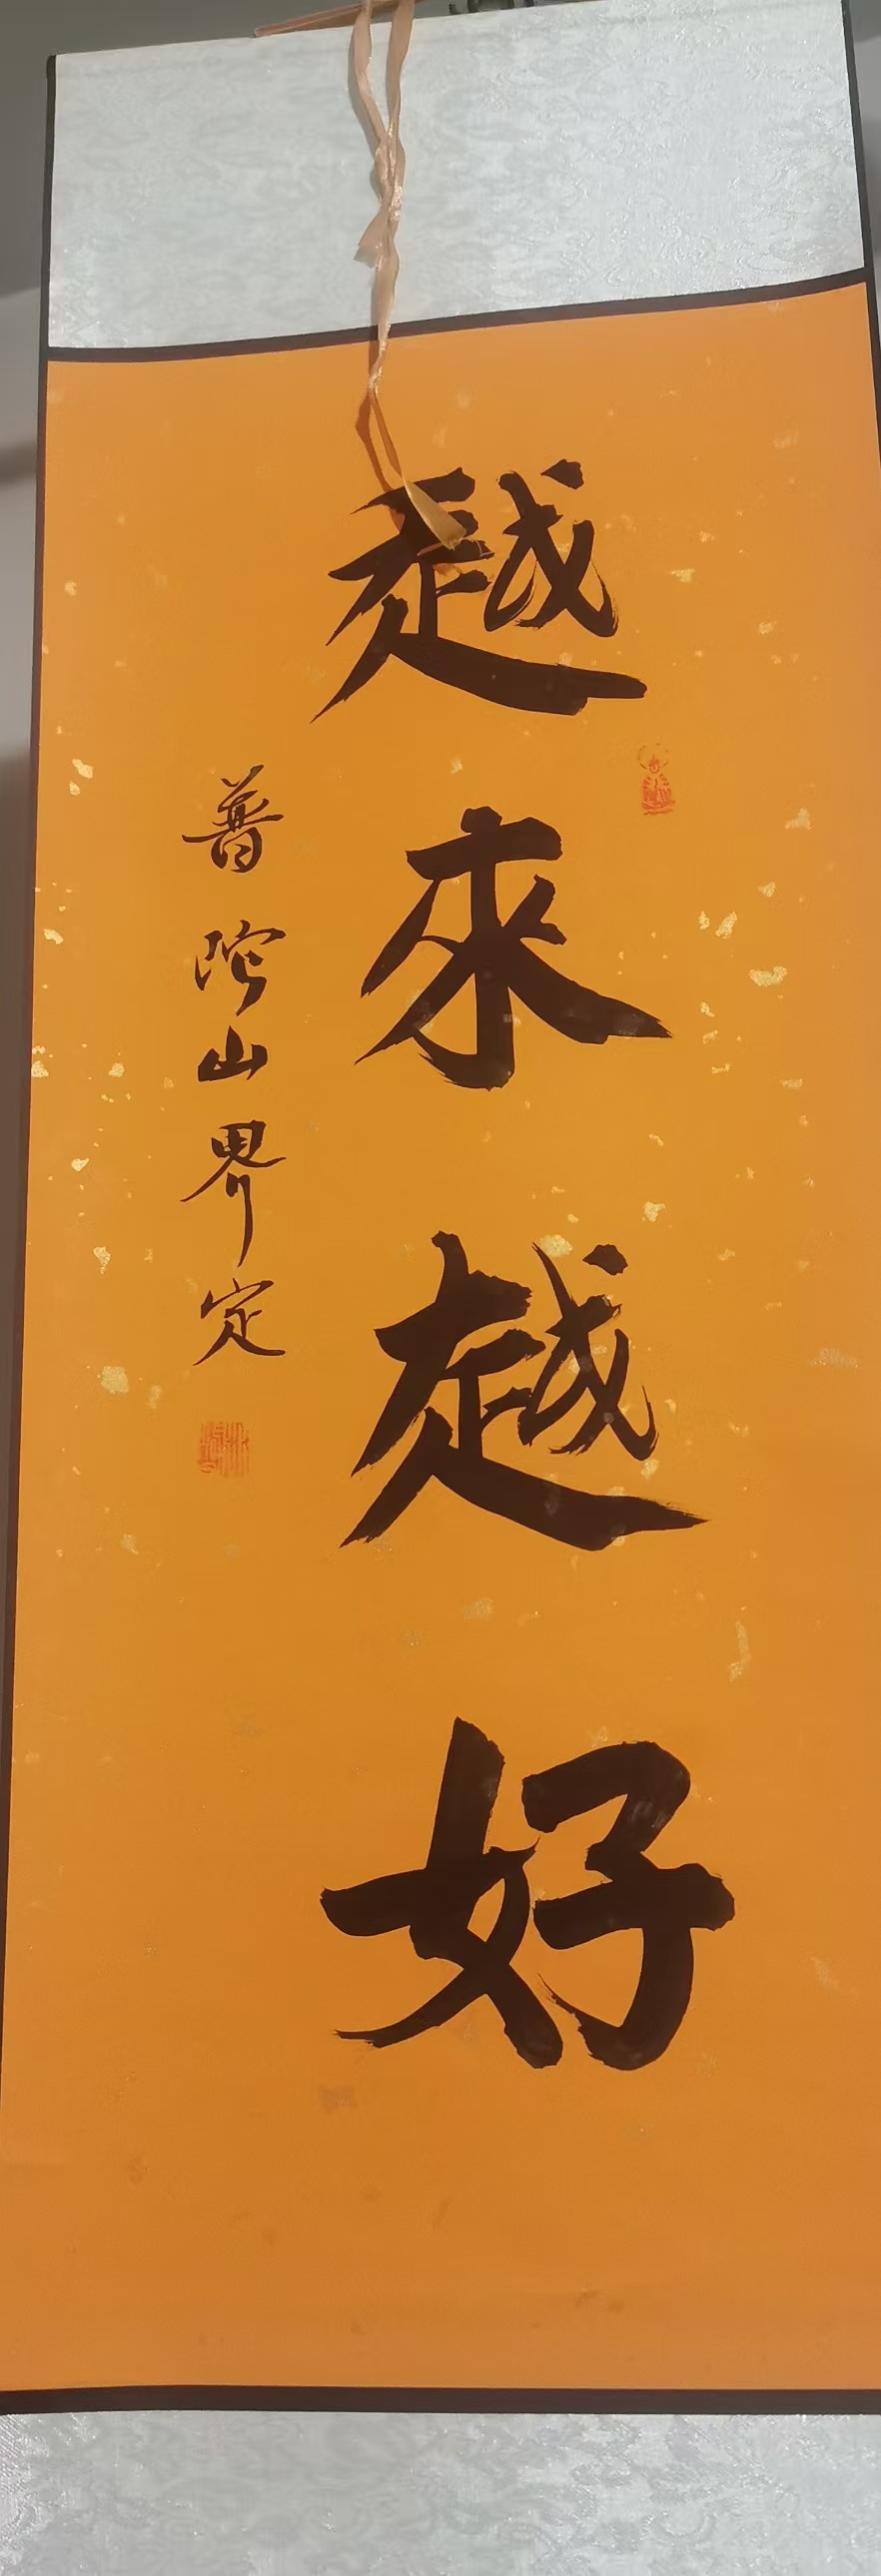 越來越好
普陀山界定